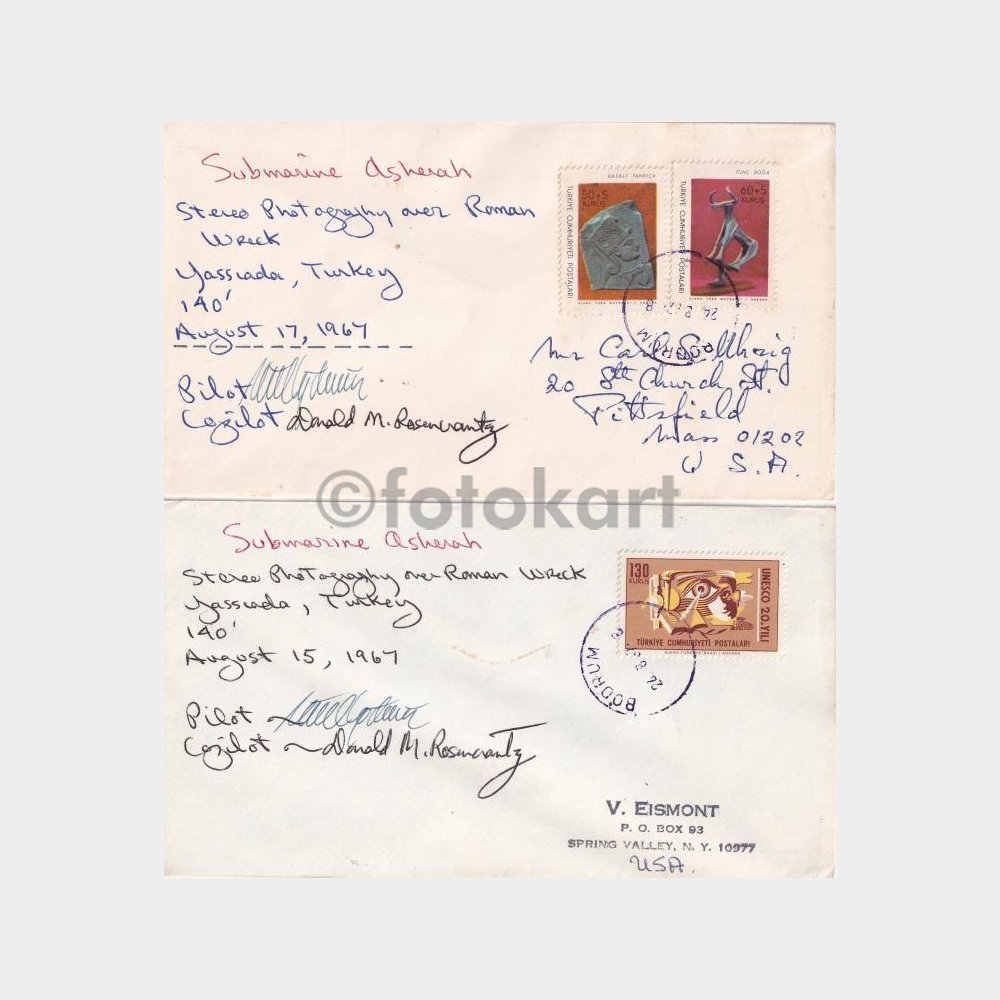 Submarine Asherah
Stereo Photography over Roman
Wreck
Yassıada, Turkey
140'
August 17, 1967
Pilot
Copilot Donald M. Rosencrantz
BAZALT TANRIÇA
50+5
KURUŞ
TÜRKİYE CUMHURİYETİ POSTALARI
AJANS-TÜRK MATBAASI / ANKARA
TUNÇ BOĞA
60+5
KURUŞ
TÜRKİYE CUMHURİYETİ POSTALARI
AJANS-TÜRK MATBAASI / ANKARA
BODRUM
Mr Carl
20 Church St.
Pittsfield
Mass 01202
U S.A.
©fotokart
Submarine Asherah
Stereo Photography over Roman Wreck
Yassıada, Turkey
140'
August 15, 1967
Pilot ~
Copilot ~ Donald M. Rosencrantz
130
KURUŞ
UNESCO 20.YILI
TÜRKİYE CUMHURİYETİ POSTALARI
AJANS-TÜRK MATBAASI ANKARA
BODRUM
24 8
V. EISMONT
P. O. BOX 93
SPRING VALLEY, N. Y. 10977
USA.